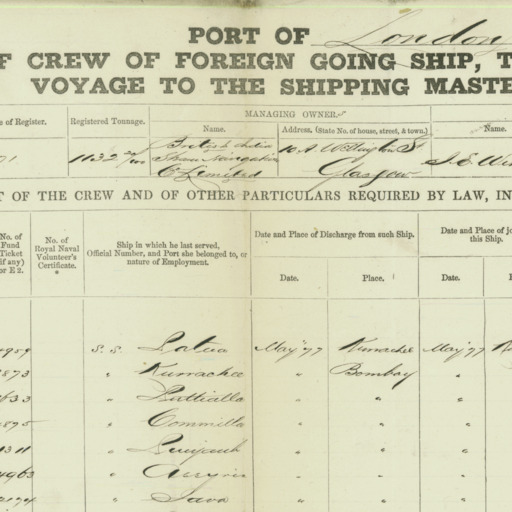 PORT OF London
F CREW OF FOREIGN GOING SHIP, T
VOYAGE TO THE SHIPPING MASTE
e of Register.
Registered Tonnage.
MANAGING OWNER.
Name.
Address, (State No. of house, street, & town.)
Name.
71
1132
British India
Steam Navigation
C Limited
10 A Wellington St
Glasgow
T OF THE CREW AND OF OTHER PARTICULARS REQUIRED BY LAW, IN
No. of
Fund
Ticket
if any)
or E 2.
No. of
Royal Naval
Volunteer's
Certificate.
*
Ship in which he last served,
Official Number, and Port she belonged to, or
nature of Employment.
Date and Place of Discharge from such Ship.
Date.
Place.
Date and Place of jo
this Ship.
Date.
S. S. May '77 Kurrachee May '77
873 " Kurrachee " Bombay "
633 " Puttialla " " "
895 " Commilla " " "
311 " Punjaub " " "
4963 " Assyria " " "
2174 " Java " " "